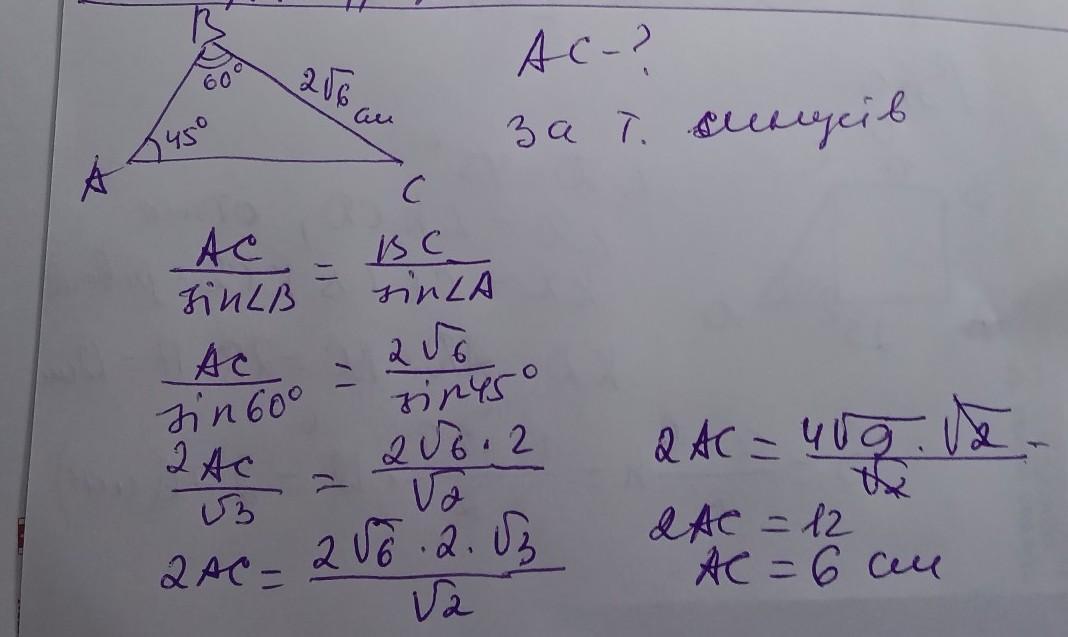 B
60°
2√6 см
45°
A
C
AC - ?
За т. синусів
AC/sin∠B = BC/sin∠A
AC/sin60° = 2√6/sin45°
2AC/√3 = 2√6 · 2/√2
2AC = 2√6 · 2 · √3/√2
2AC = 4√9 · √2/√2 -
2AC = 12
AC = 6 см